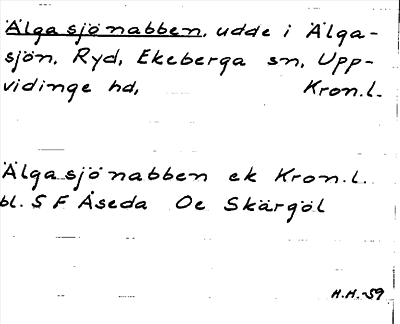 Älgasjönabben, udde i Älga-
sjön, Ryd, Ekeberga sn, Upp-
vidinge hd, Kron.l.
Älgasjönabben ek Kron.l.
bl. S F Åseda Oe Skärgöl
H.H.-59